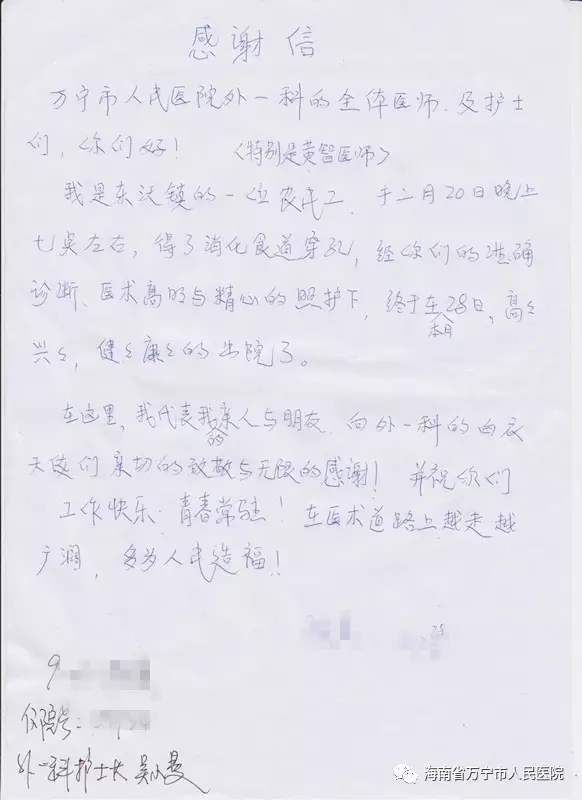 感谢信
万宁市人民医院外一科的全体医师.及护士
们,你们好! <特别是黄智医师>
我是东沃镇的一位农民工.于二月20日晚上
七点左右,得了消化食道穿孔,经你们的准确
诊断、医术高明与精心的照护下,终于在本月28日,高々
兴々,健々康々的出院了。
在这里,我代表我的亲人与朋友.向外一科的白衣
天使们亲切的致敬与无限的感谢! 并祝你们
工作快乐.青春常驻! 在医术道路上越走越
广阔,多为人民造福!
28
9
住院号:
外一科护士长 吴小曼
海南省万宁市人民医院